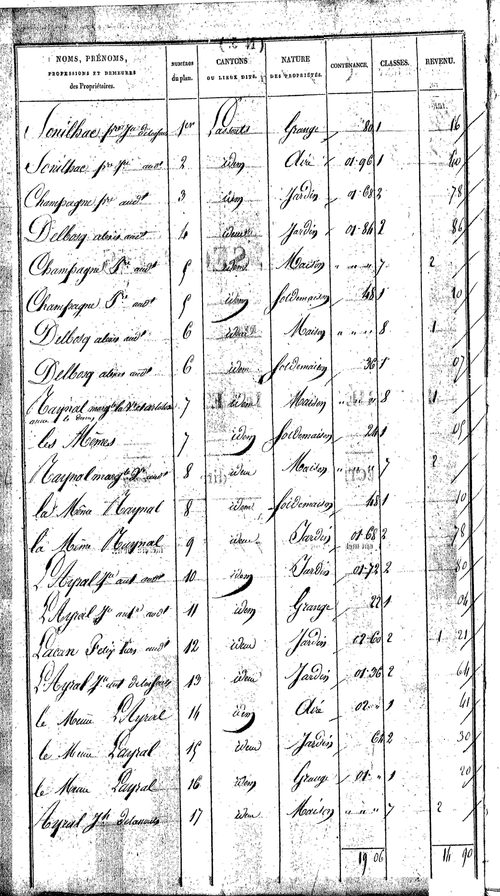 ( 2 )
NOMS, PRÉNOMS, PROFESSIONS ET DEMEURES des Propriétaires. NUMÉROS du plan. CANTONS OU LIEUX DITS. NATURE DES PROPRIÉTÉS. CONTENANCE. CLASSES. REVENU.
Sonilhac 1er Grange 80 1 16
Sonilhac 2 idem Airé 01-96 1 60
Champagne 3 idem Jardin 01-68 2 78
Delbosq alexis 4 idem Jardin 01-84 2 86
Champagne 5 idem Maison " " 7 2 "
Champagne 5 idem Soldemaison 48 1 10
Delbosq alexis 6 idem Maison " " 8 1 "
Delbosq alexis 6 idem Soldemaison 36 1 07
Raynal 7 idem Maison " " 8 1 "
les Mêmes 7 idem Soldemaison 24 1 05
Raynal 8 idem Maison " " 7 2 "
la Même Raynal 8 idem Soldemaison 48 1 10
la Même Raynal 9 idem Jardin 01-68 2 78
L'Ayral 10 idem Jardin 01-72 2 80
L'Ayral 11 idem Grange 22 1 04
Lacan Felix 12 idem Jardin 02-60 2 1 21
L'Ayral 13 idem Jardin 01-36 2 64
le Même L'Ayral 14 idem Airé 02 " 1 41
le Même Layral 15 idem Jardin 64 2 30
le Même Layral 16 idem Grange 01 " 1 20
Ayral 17 idem Maison " " 7 2 "
19 06 14 90